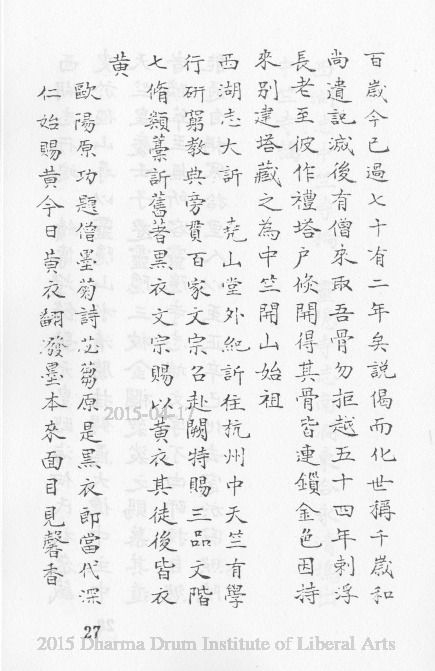 百歲今已過七十有二年矣説偈而化世稱千歲和
尚遺記滅後有僧來取吾骨勿拒越五十四年剌浮
長老至彼作禮塔户倐開得其骨皆連鎖金色因持
來别建塔藏之為中竺開山始祖
西湖志大訢 堯山堂外紀訢住杭州中天竺有學
行研窮教典旁貫百家文宗召赴闕特賜三品文階
七脩類藁訢舊著黒衣文宗賜以黄衣其徒後皆衣
黄
歐陽原功題僧墨菊詩苾蒭原是黒衣郎當代深
仁始賜黄今日黄衣翻潑墨本來面目見馨香
27
2015-04-17
2015 Dharma Drum Institute of Liberal Arts